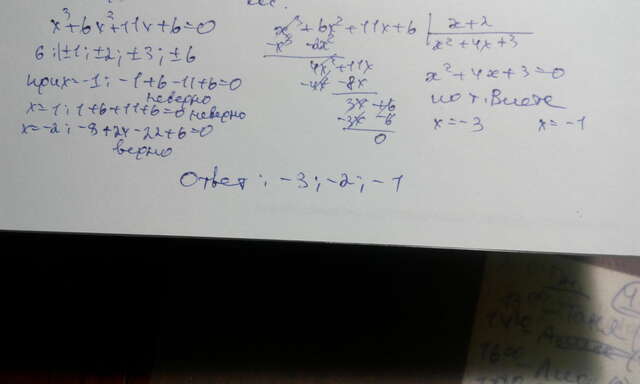 x³+6x²+11x+6=0
6: ±1; ±2; ±3; ±6
при x=-1; -1+6-11+6=0
неверно
x=1; 1+6+11+6=0 неверно
x=-2; -8+24-22+6=0
верно
x³+6x²+11x+6 | x+2
-x³ -2x² x²+4x+3
4x²+11x
-4x² -8x
3x+6
-3x-6
0
x²+4x+3=0
по т. Виета
x=-3 x=-1
Ответ: -3; -2; -1